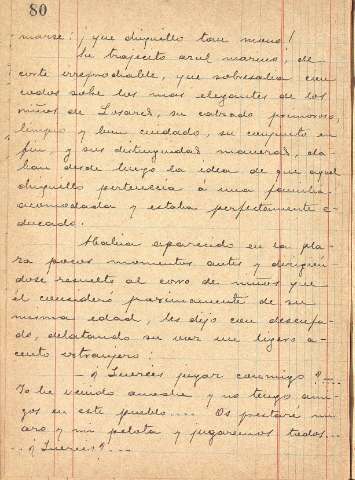 80
marse! ¡que chiquillo tan mono!
Su trajecito azul marino, de
corte irreprochable, que sobresalia con
todos sobre los mas elegantes de los
niños de Losares, su calzado primoroso,
limpio y bien cuidado, su conjunto en
fin y sus distinguidas maneras, da-
ban desde luego la idea de que aquel
chiquillo pertenecia á una familia
acomodada y estaba perfectamente e-
ducado.
Habia aparecido en la pla-
za pocos momentos antes y dirigién-
dose resuelto al corro de niños que
él consideró proximamente de su
misma edad, les dijo con desenfa-
do, delatando su voz un ligero a-
cento extranjero:
— ¿Quereis jugar conmigo?—
Yo he venido anoche y no tengo ami-
gos en este pueblo.... Os prestaré mi
aro y mi pelota y jugaremos todos...
..¿Quereis?....